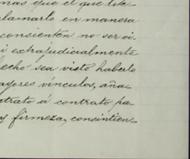 mas que el que
clamarlo en manera
consienten no ser oi
i extrajudicialmente
echo sea visto haberlo
ayores vínculos, aña
trato á contrato pa
y firmeza, consintien